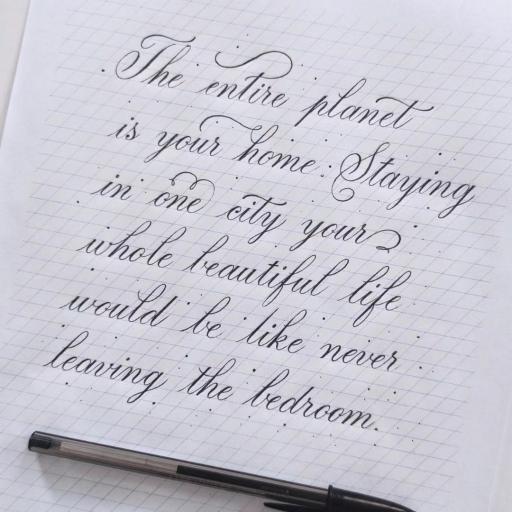 The entire planet
is your home. Staying
in one city your
whole beautiful life
would be like never
leaving the bedroom.